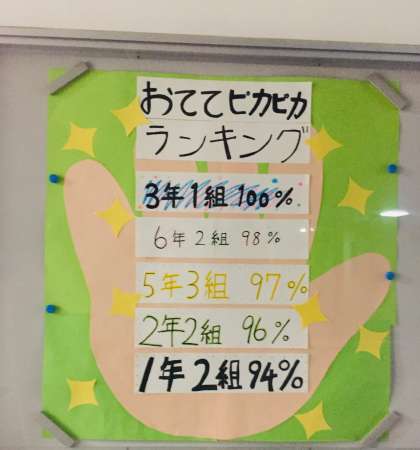 おててピカピカ
ランキング
3年1組 100%
6年2組 98%
5年3組 97%
2年2組 96%
1年2組 94%